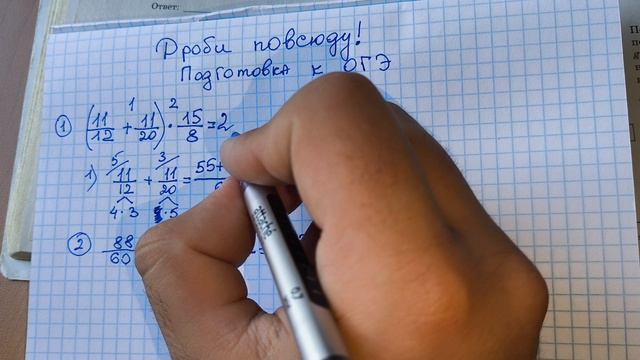 Ответ:
Дроби повсюду!
Подготовка к ОГЭ
1 2
① (11/12 + 11/20) · 15/8 = 2,
5 3
1) 11/12 + 11/20 = 55+
4·3 ·5
② 88/60 =